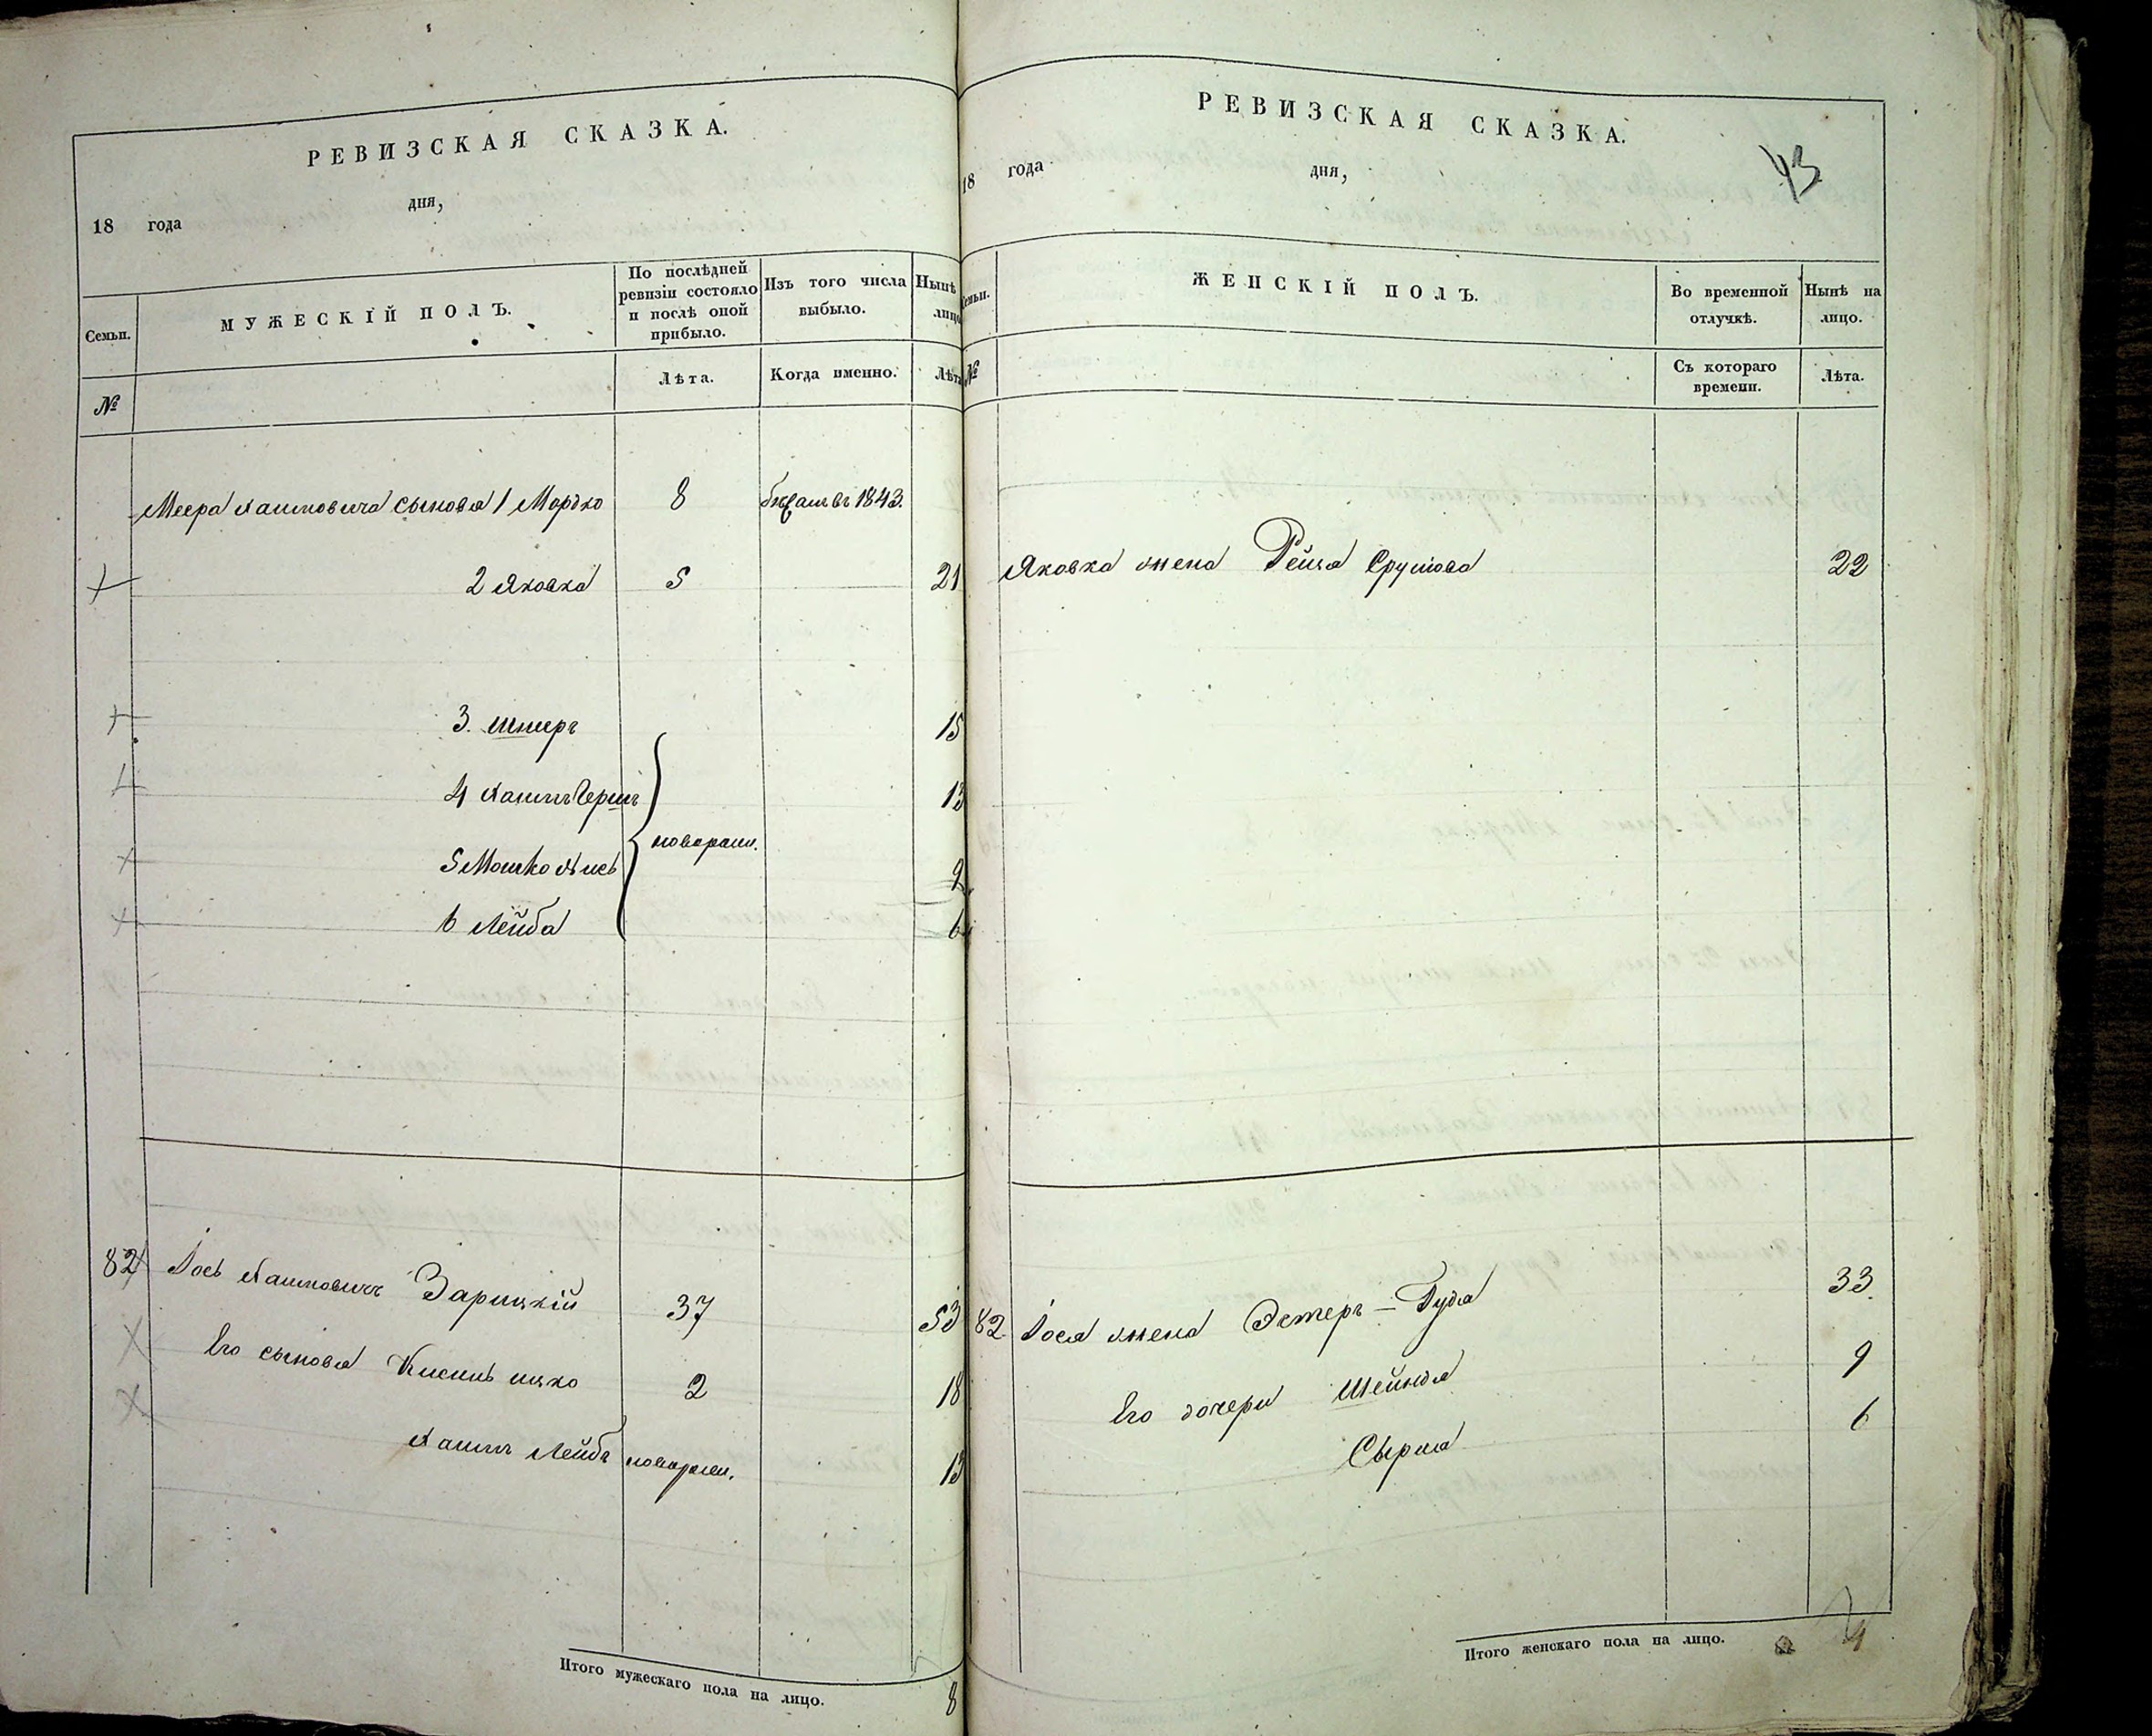 РЕВИЗСКАЯ СКАЗКА.
18 года дня,
Семьи.
МУЖЕСКІЙ ПОЛЪ.
По послѣдней ревизіи состояло и послѣ оной прибыло.
Изъ того числа выбыло.
Нынѣ лицо
№
Лѣта.
Когда именно.
Лѣта
Меера Хаимовича сыновья 1 Мордко 8 въ 1843.
2 Яковка 5 21
3. Шмеръ 15
4 Хаимъ Гершъ 13
новорожд.
5 Мошко 9
6 Лейба 6
82 Іось Хаимовичъ Зарицкій 37 53
Его сыновья ицко 2 18
Хаимъ Лейбъ новорожд. 13
Итого мужескаго пола на лицо. 8
РЕВИЗСКАЯ СКАЗКА.
43
18 года дня,
Семьи.
ЖЕНСКІЙ ПОЛЪ.
Во временной отлучкѣ.
Нынѣ на лицо.
№
Съ котораго времени.
Лѣта.
Яковка жена Рейза Срулова 22
82 Іося жена Эстеръ-Гудя 33.
Его дочери Шейндя 9
Сырка 6
Итого женскаго пола на лицо. 4